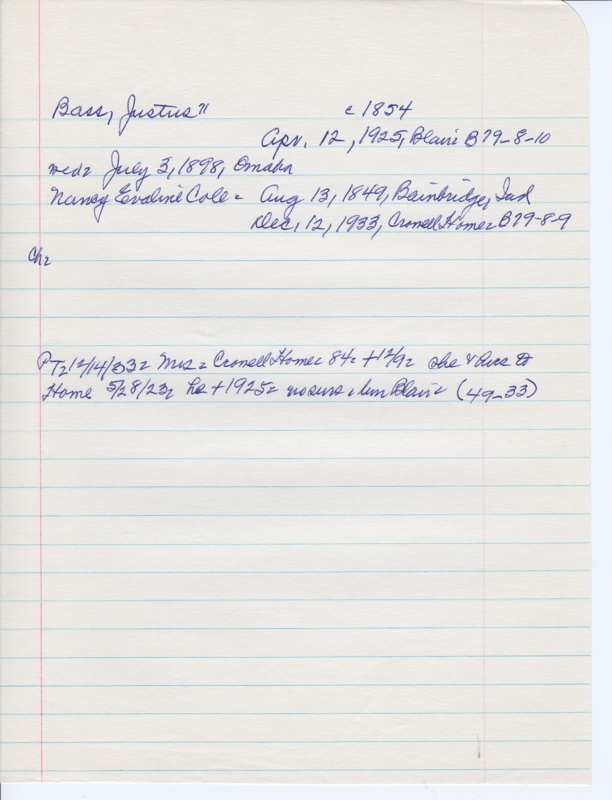 Bass, Justus" c 1854
Apr. 12, 1925, Blair B79-8-10
wed= July 3, 1898, Omaha
Nancy Evaline Cole = Aug 13, 1849, Bainbridge, Ind
Dec, 12, 1933, Crowell Home= B79-8-9
Ch=
PT= 12/14/33= Mrs = Crowell Home= 84= + 12/9= she & Bass to
Home 5/28/23= he + 1925= no survs, bur Blair= (49-33)